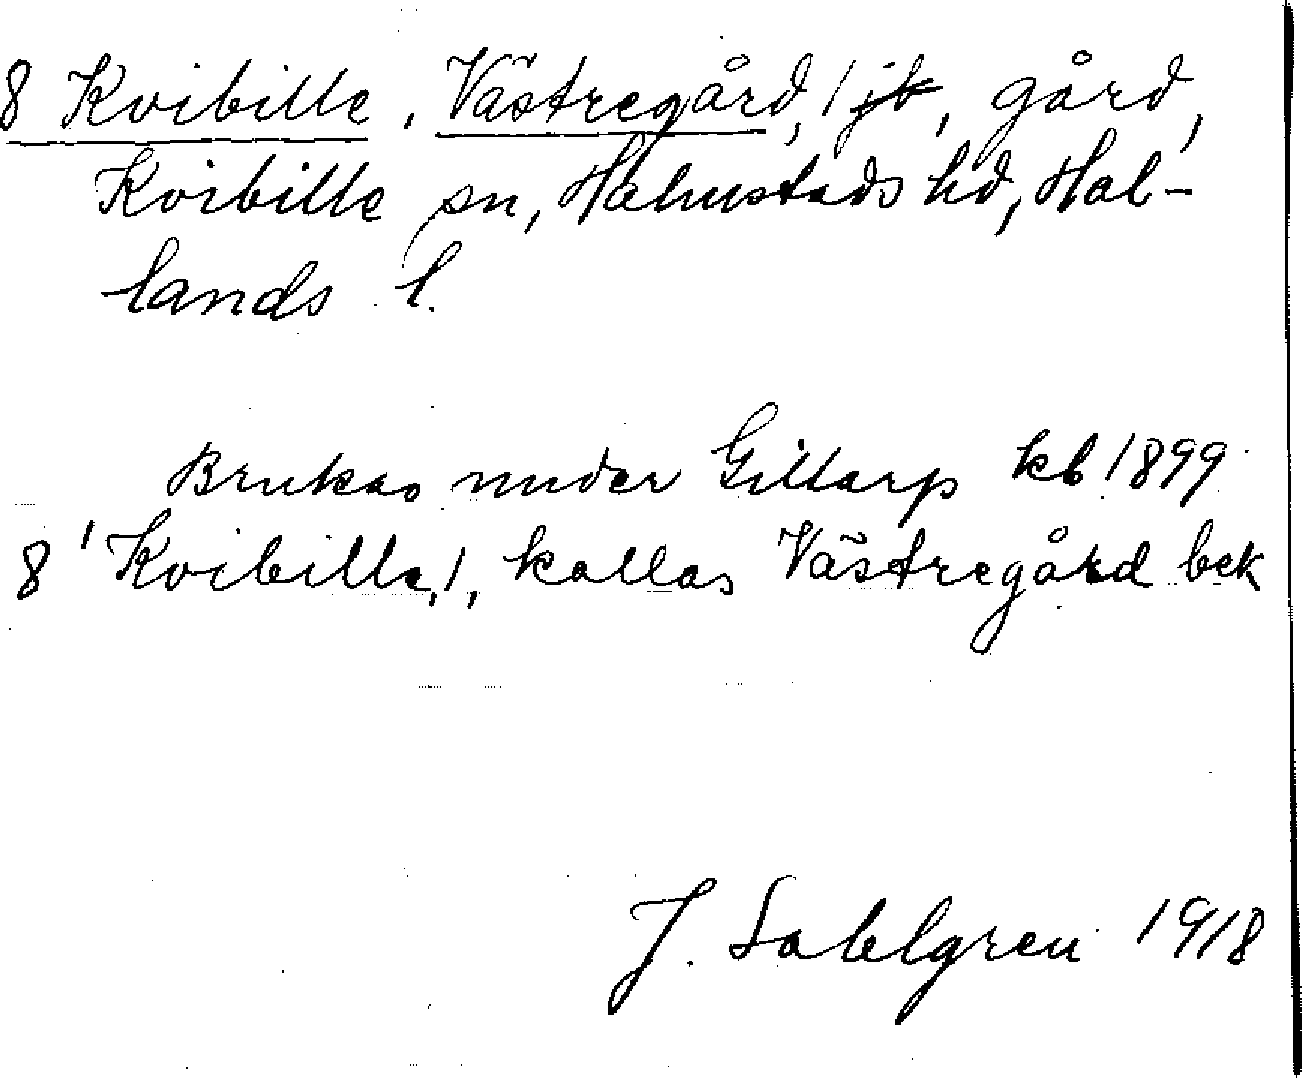 8 Kvibille, Västregård, 1 jb, gård,
Kvibille sn, Halmstads hd, Hal-
lands l.
Brukas under Gillarp kb 1899
8 ' Kvibille, 1, kallas Västregård bek
J. Sahlgren 1918